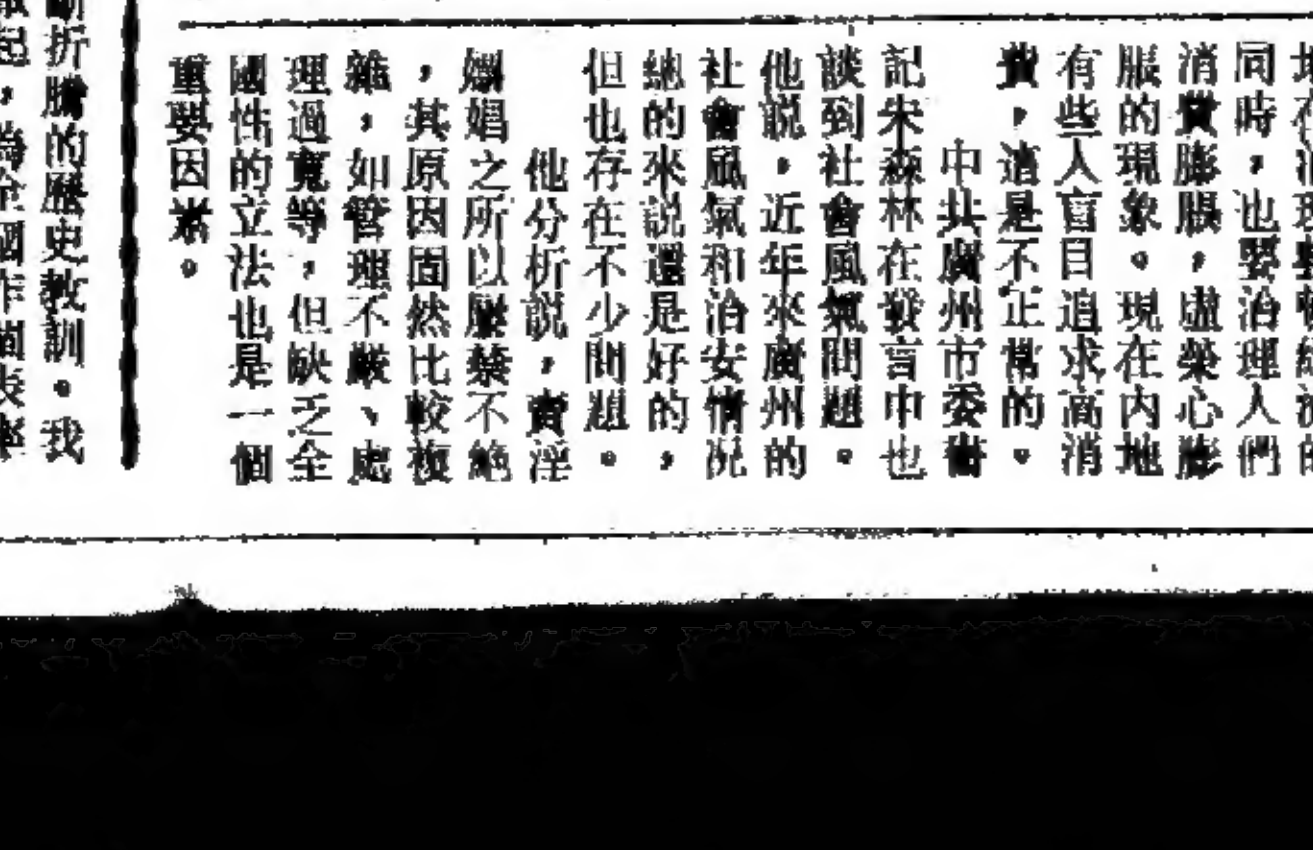 同時，也要治理人們
消費膨脹，虛榮心膨
脹的現象。現在內地
有些人盲目追求高消
費，這是不正常的。
中共廣州市委書
記朱森林在發言中也
談到社會風氣問題。
他說，近年來廣州的
社會風氣和治安情況
總的來說還是好的，
但也存在不少問題。
他分析說，賣淫
嫖娼之所以屢禁不絕
，其原因固然比較複
雜，如管理不嚴、處
理過寬等，但缺乏全
國性的立法也是一個
重要因素。
折騰的歷史教訓。我